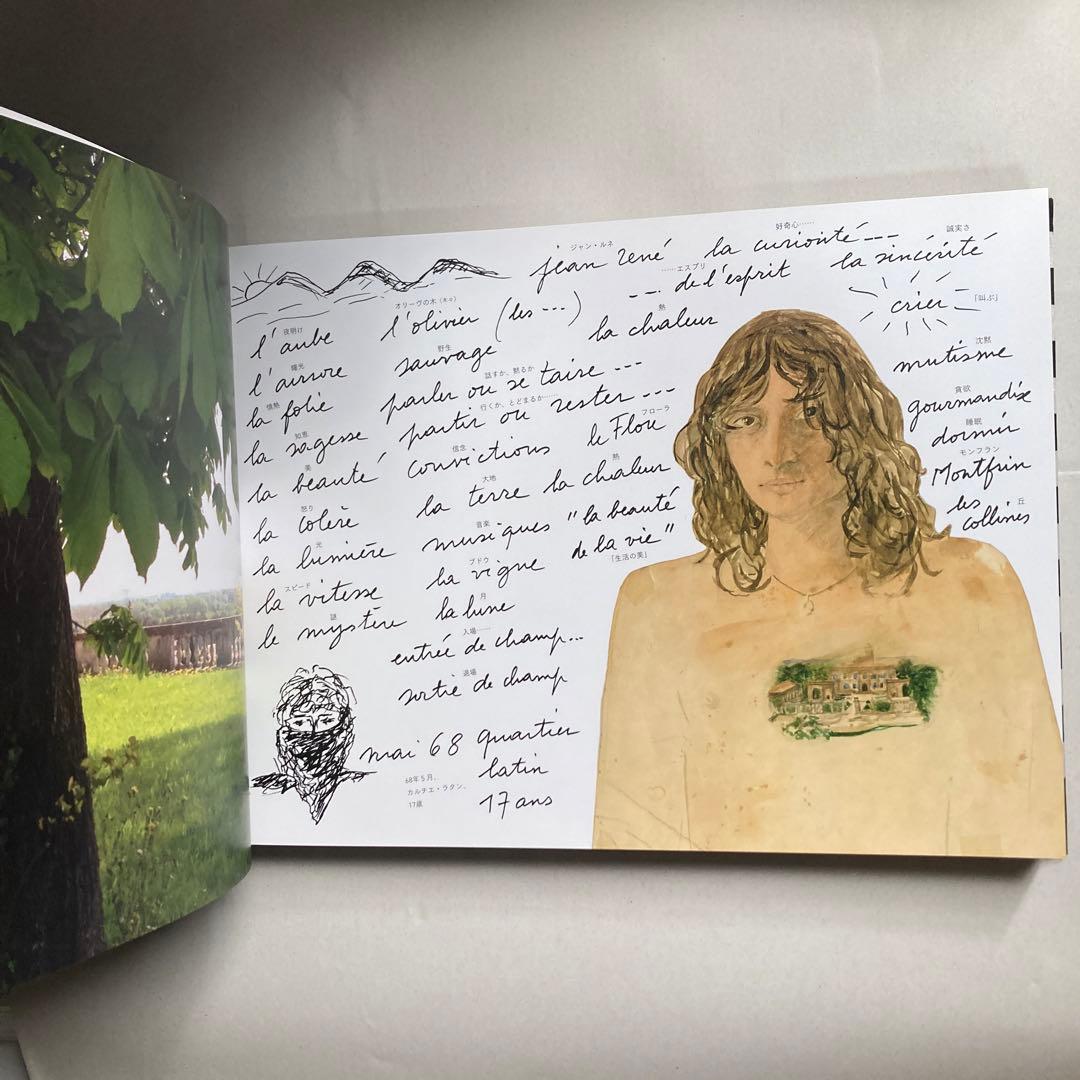 ジャン・ルネ
jean rené
好奇心……
la curiosité ---
……エスプリ
--- de l'esprit
誠実さ
la sincérité
夜明け
l'aube
曙光
l'aurore
情熱
la folie
知恵
la sagesse
美
la beauté
怒り
la colère
光
la lumière
スピード
la vitesse
謎
le mystère
オリーヴの木（木々）
l'olivier (les ---)
野生
sauvage
話すか、黙るか
parler ou se taire ---
行くか、とどまるか……
partir ou rester ---
信念
convictions
大地
la terre
音楽
musiques
ブドウ
la vigne
月
la lune
入場……
entrée de champ...
退場
sortie de champ
熱
la chaleur
フローラ
le Flore
熱
la chaleur
"la beauté
de la vie"
「生活の美」
crier
「叫ぶ」
沈黙
mutisme
貪欲
gourmandise
睡眠
dormir
モンフラン
Montfrin
丘
les
collines
mai 68 quartier
latin
17 ans
68年5月、
カルチエ・ラタン、
17歳